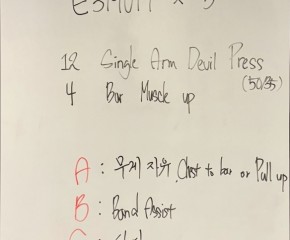 12 Single Arm Devil Press
(50/35)
4 Bar Muscle up
A : 무게 자유, Chest to bar or Pull up
B : Band Assist